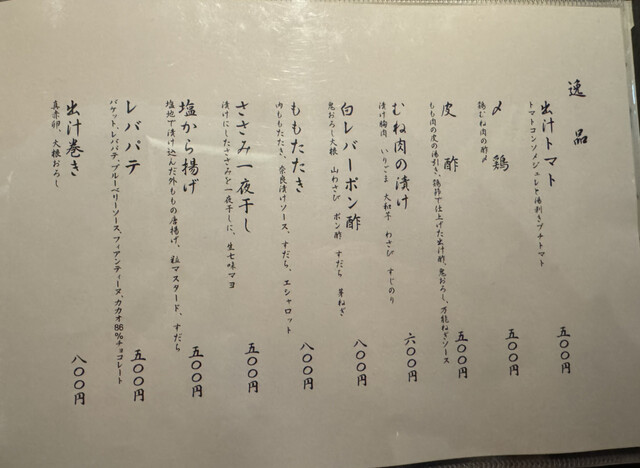 逸品
出汁トマト
トマトコンソメジュレと湯剥きプチトマト
五〇〇円
〆鶏
鶏むね肉の酢〆
五〇〇円
皮酢
もも肉の皮の湯引き、鶏節で仕上げた出汁酢、鬼おろし、万能ねぎソース
五〇〇円
むね肉の漬け
漬け胸肉 いりごま 大和芋 わさび すじのり
六〇〇円
白レバーポン酢
鬼おろし大根 山わさび ポン酢 すだち 芽ねぎ
八〇〇円
ももたたき
内ももたたき、奈良漬けソース、すだち、エシャロット
八〇〇円
ささみ一夜干し
漬けにしたささみを一夜干しに、生七味マヨ
五〇〇円
塩から揚げ
塩地で漬け込んだ外ももの唐揚げ、私マスタード、すだち
五〇〇円
レバパテ
バケット、レバパテ、ブルーベリーソース、フィアンティーヌ、カカオ86%チョコレート
五〇〇円
出汁巻き
真赤卵、大根おろし
八〇〇円